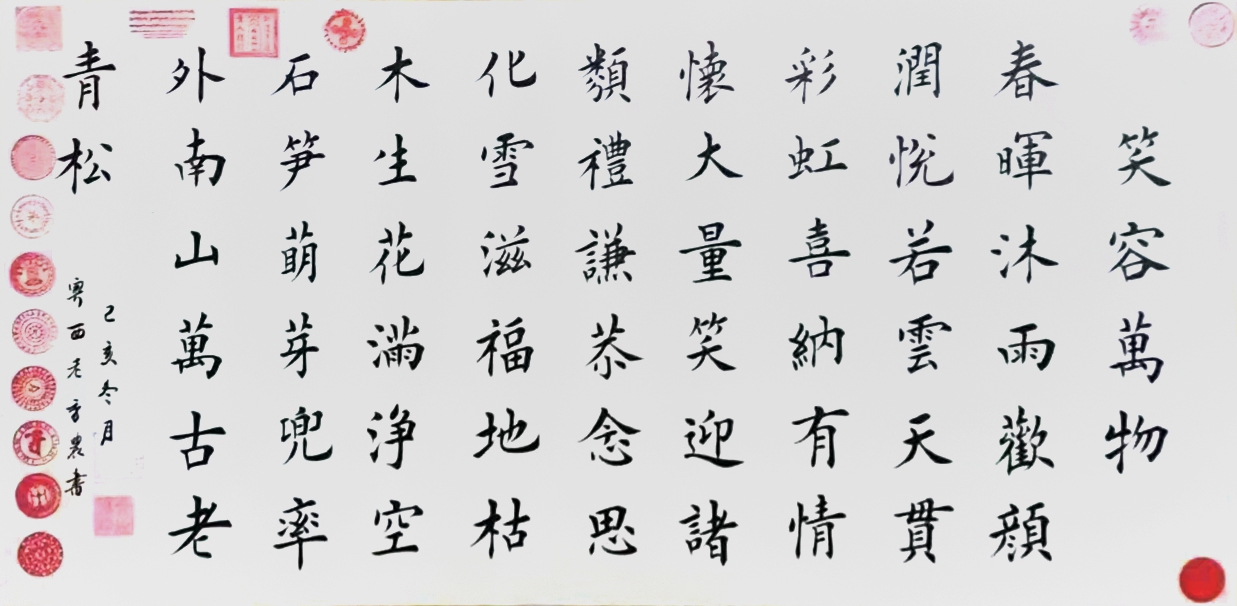 笑容萬物
春暉沐雨歡顔
潤悅若雲天貫
彩虹喜納有情
懷大量笑迎諸
類禮謙恭念思
化雪滋福地枯
木生花滿淨空
石笋萌芽兜率
外南山萬古老
青松
己亥冬月
粤西老書農書